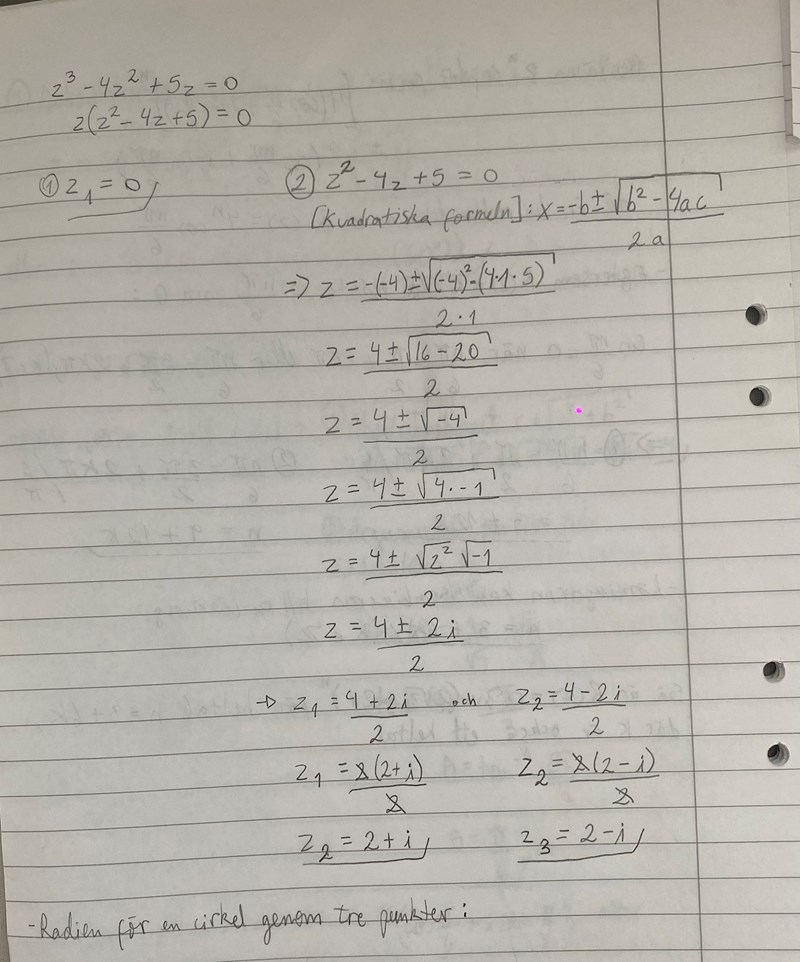 z³ - 4z² + 5z = 0
z(z² - 4z + 5) = 0
① z₁ = 0 ② z² - 4z + 5 = 0
[Kvadratiska formeln]: x = (-b ± √(b² - 4ac)) / 2a
=> z = (-(-4) ± √((-4)² - (4·1·5))) / 2·1
z = (4 ± √(16 - 20)) / 2
z = (4 ± √(-4)) / 2
z = (4 ± √(4·-1)) / 2
z = (4 ± √2² √-1) / 2
z = (4 ± 2i) / 2
→ z₁ = (4 + 2i) / 2 och z₂ = (4 - 2i) / 2
z₁ = 2(2+i) / 2 z₂ = 2(2-i) / 2
z₂ = 2+i z₃ = 2-i
-Radien för en cirkel genom tre punkter: